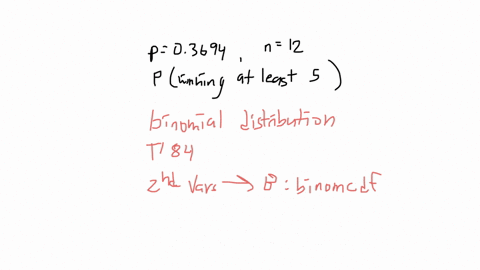 p=0.3694, n=12
P(winning at least 5)
binomial distribution
TI 84
2nd Vars → B: binomcdf